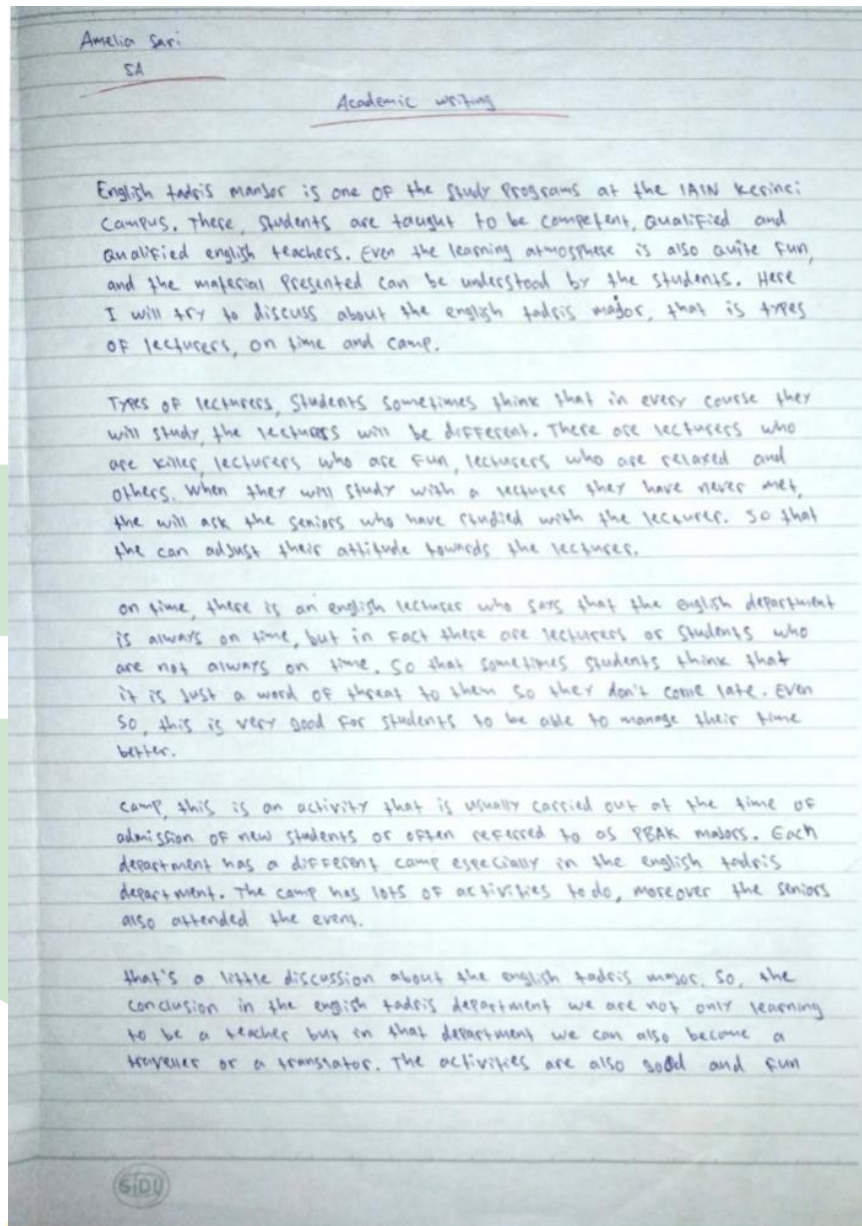 Amelia Sari
5A
Academic writing
English tadris manjor is one of the study programs at the IAIN Kerinci
Campus. There, students are taught to be competent, qualified and
qualified english teachers. Even the learning atmosphere is also quite fun,
and the material presented can be understood by the students. Here
I will try to discuss about the english tadris major, that is types
of lecturers, on time and camp.
Types of lecturers, students sometimes think that in every course they
will study, the lecturers will be different. There are lecturers who
are killer, lecturers who are fun, lecturers who are relaxed and
others. When they will study with a lecturer they have never met,
the will ask the seniors who have studied with the lecturer. So that
the can adjust their attitude towards the lecturer.
on time, there is an english lecturer who says that the english department
is always on time, but in fact there are lecturers or students who
are not always on time. So that sometimes students think that
it is just a word of threat to them so they don't come late. Even
so, this is very good for students to be able to manage their time
better.
camp, this is an activity that is usually carried out at the time of
admission of new students or often referred to as PBAK majors. Each
department has a different camp especially in the english tadris
department. The camp has lots of activities to do, moreover the seniors
also attended the event.
that's a little discussion about the english tadris major. So, the
conclusion in the engish tadris department we are not only learning
to be a teacher but in that department we can also become a
traveller or a translator. The activities are also good and fun
SIDU